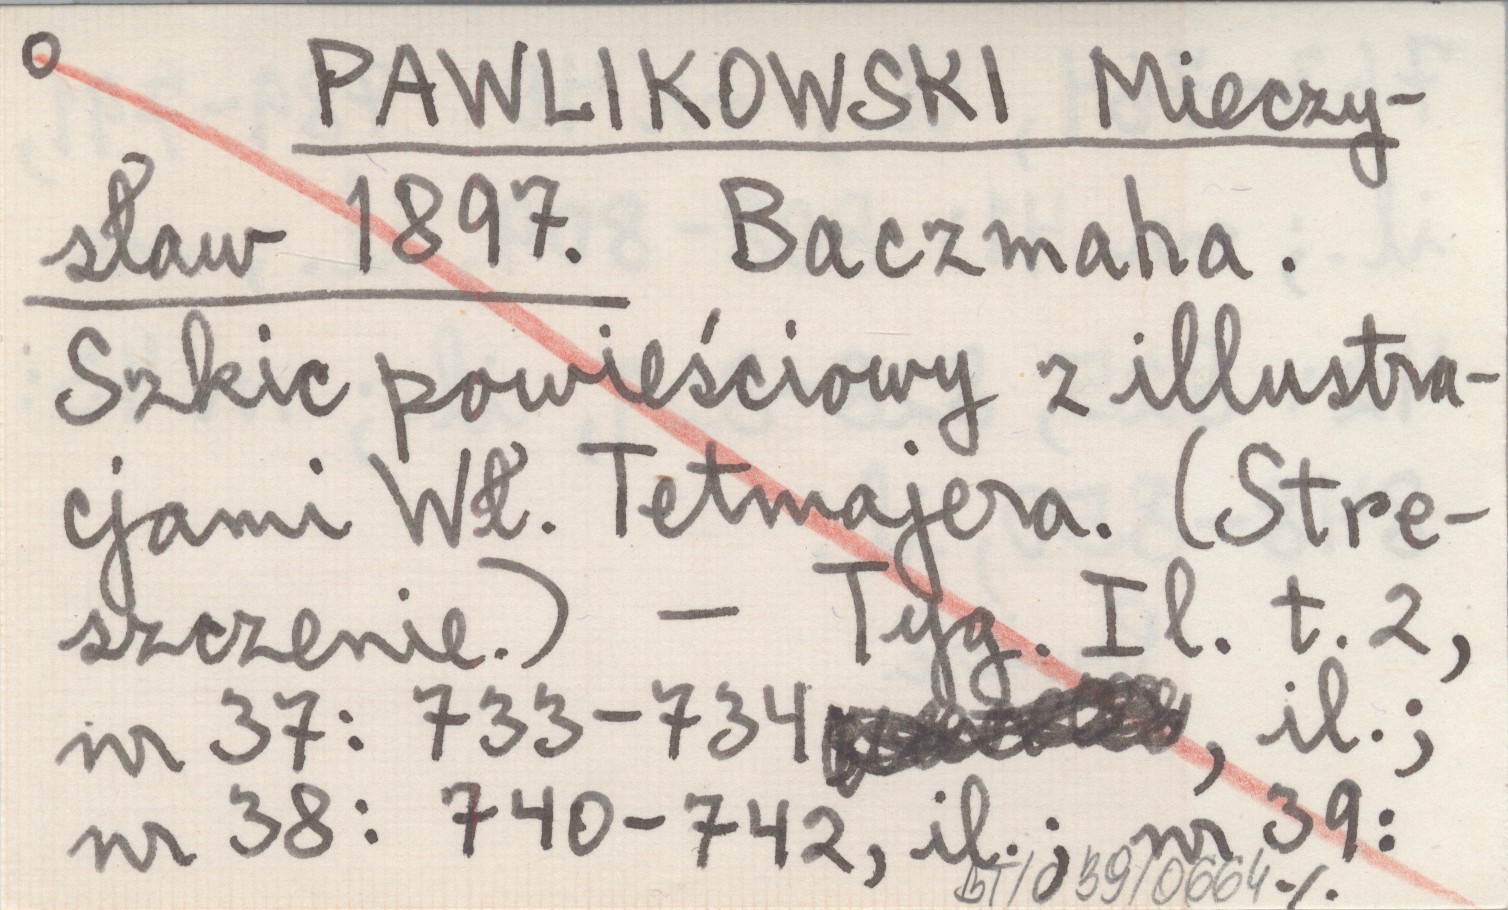 o PAWLIKOWSKI Mieczy-
sław 1897. Baczmaha.
Szkic powieściowy z illustra-
cjami Wł. Tetmajera. (Stre-
szczenie.) — Tyg. Il. t. 2,
nr 37: 733-734, il.;
nr 38: 740-742, il.; nr 39:
BT/039/0664 -/.